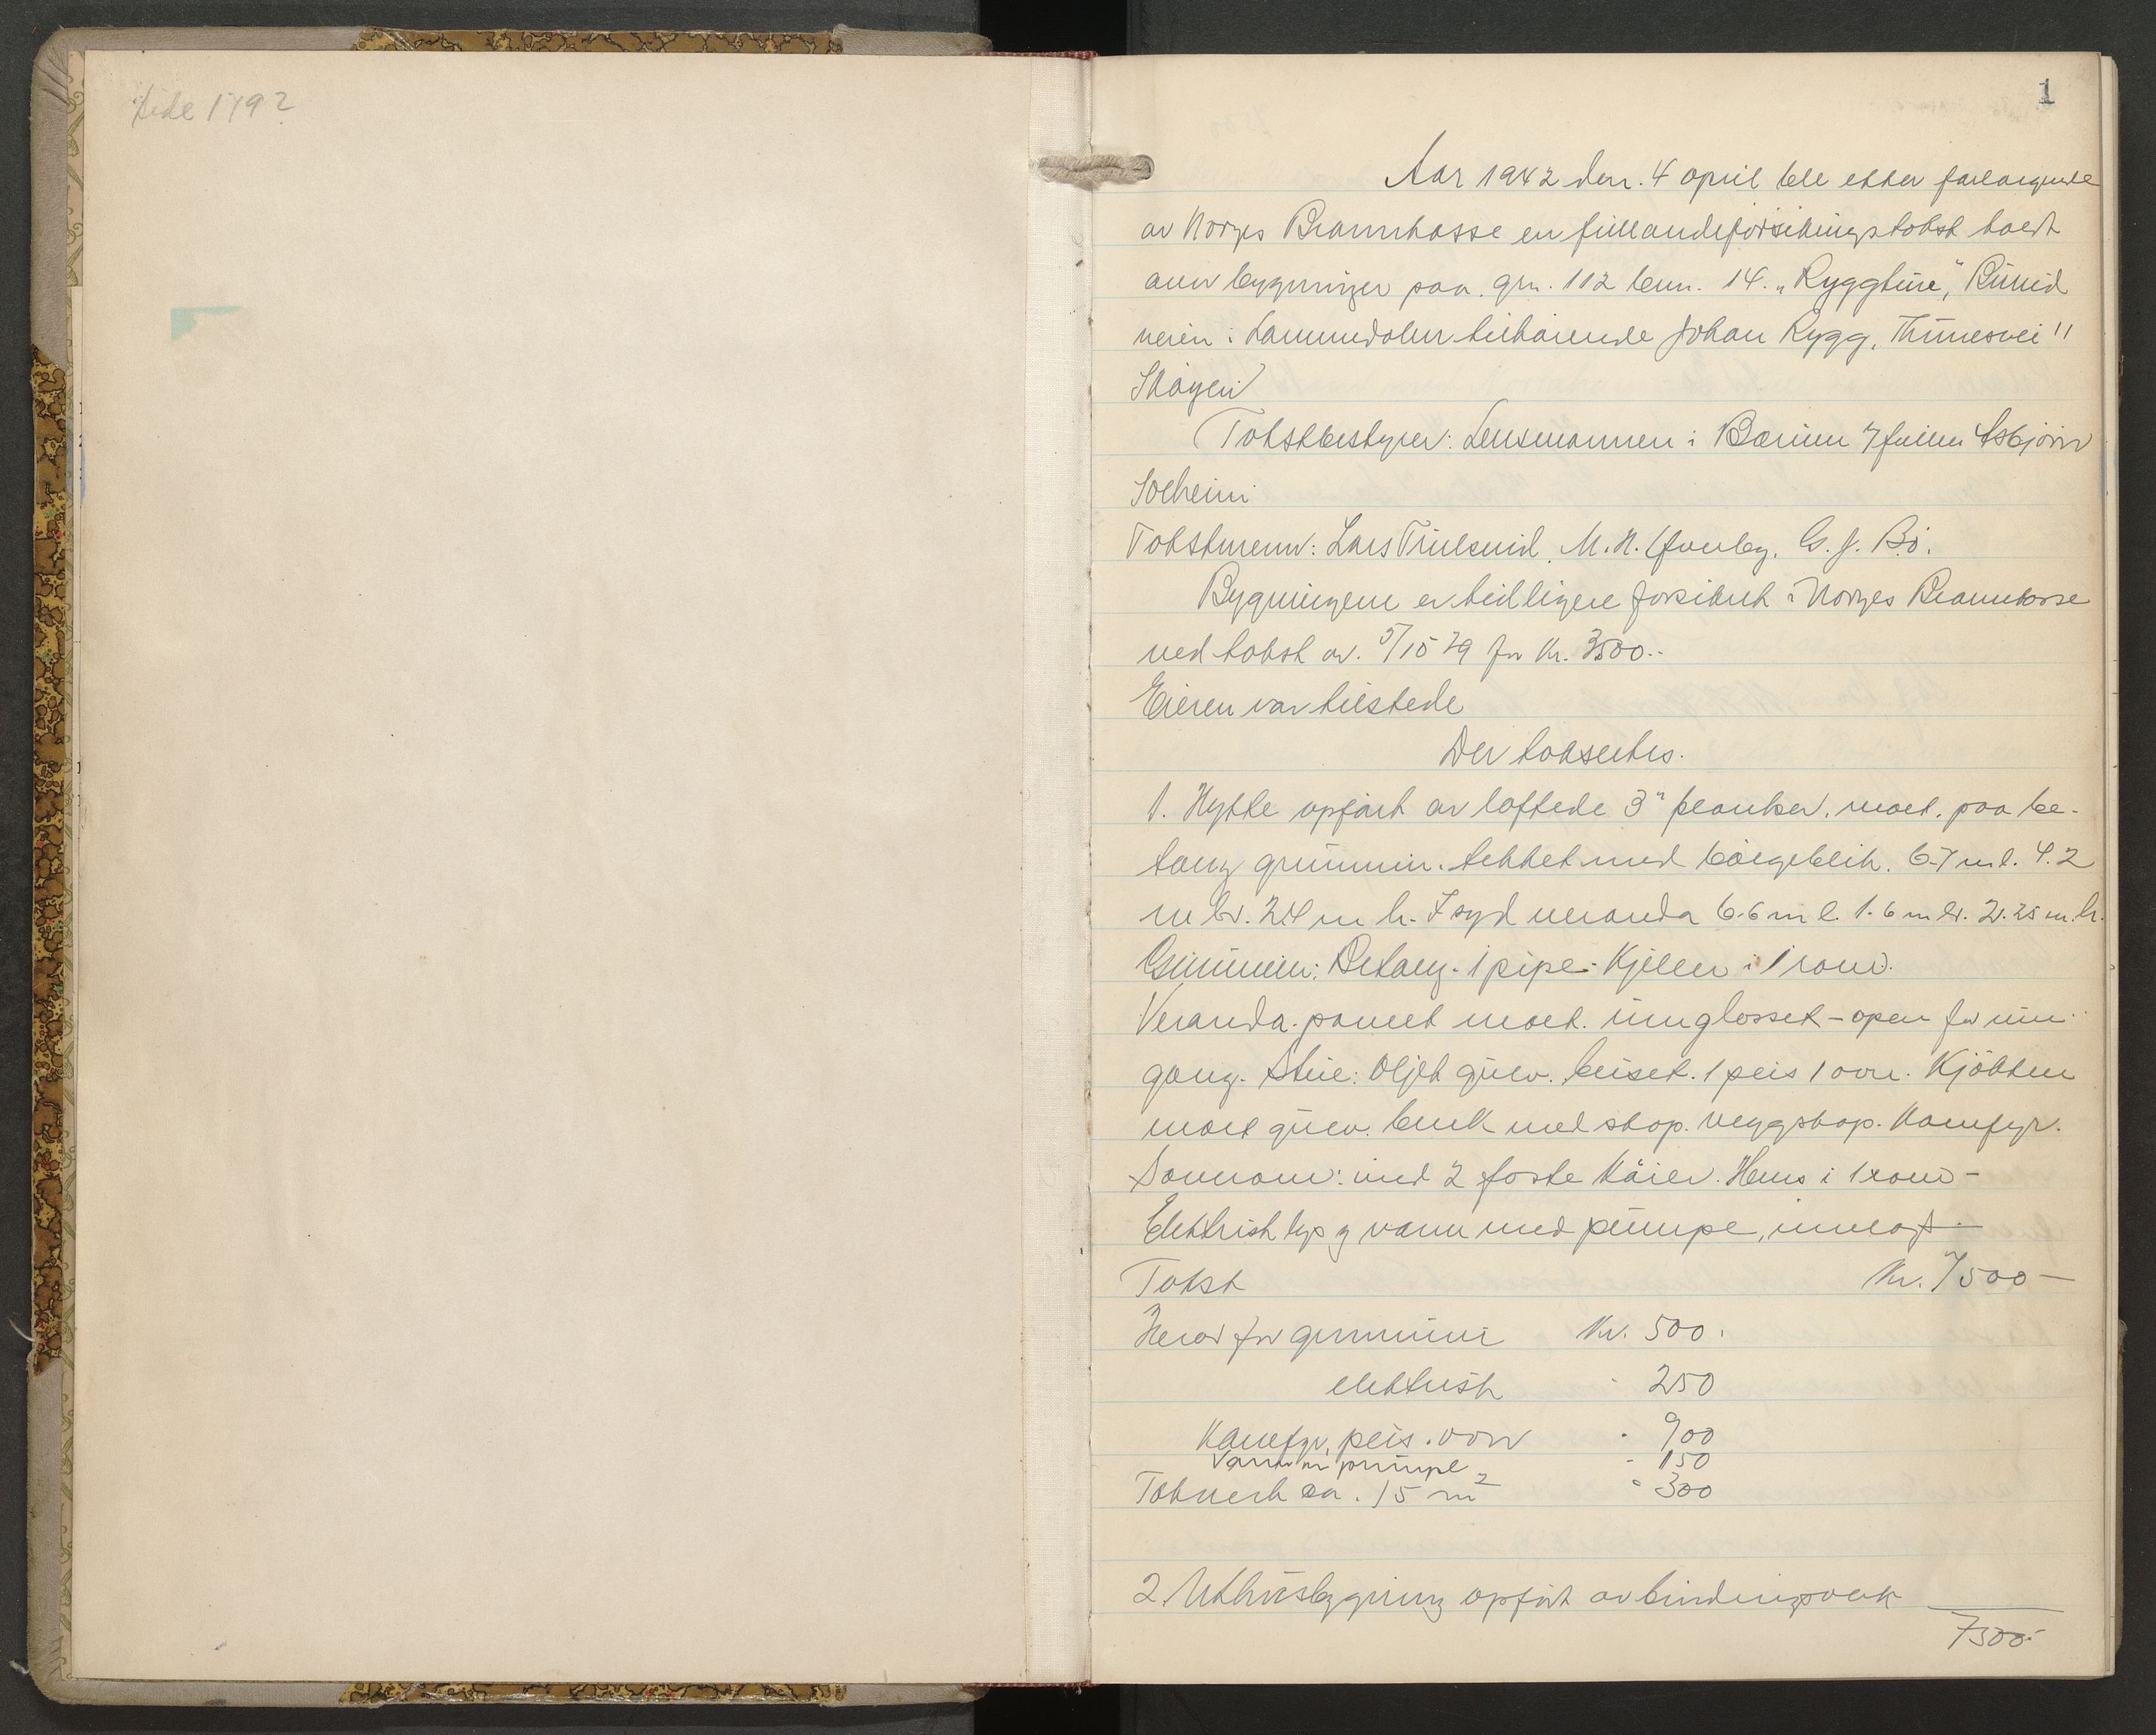 Side 1192
1
Aar 1942 den. 4 april ble etter forlangende
av Norges Brannkasse en fullendeforsikringstakst holdt
over bygninger paa. grn. 112 bnr. 14. "Ryggtun", Runid
veien i Lommedalen tilhörende Johan Rygg, Thunesvei 11
Sköyen
Takstbestyrer: Lensmannen i Bærum v/fullm Asbjörn
Solheim
Takstmenn: Lars Trulsrud. M. N. G. J. Bö.
Bygningene er tidligere forsikret i Norges Brannkasse
ved takst av. 5/10 39 for Kr. 3500.-
Eieren var tilstede
Der taksertes.
1. Hytte opfört av laftede 3" planker. malt. paa be-
tong grunnmur. tekket med bölgeblik. 6.7 m l. 4.2
m br. 2.4 m h. I syd veranda 6.6 m l. 1.6 m br. 2.25 m. h.
Grunnmur: Betong. 1 pipe. Kjeller i 1 rom.
Veranda. panelt malt. innglasset - open for inn
gang. Stue: Oljet gulv. beiset. 1 peis 1 ovn. Kjökken
malt gulv. benk med skap. veggskap. Komfyr.
Soverom: med 2 faste köier. Hems i 1 rom -
Elektrisk lys og vann med pumpe, innlagt -
Takst Kr. 7500 -
Herav for grunnmur Kr. 500.
elektrisk - 250
Komfyr, peis. ovn - 900
Vann m pumpe - 150
Takverk ca. 15 m2 - 300
2. Uthusbygning opfört av bindingsverk
7500.-